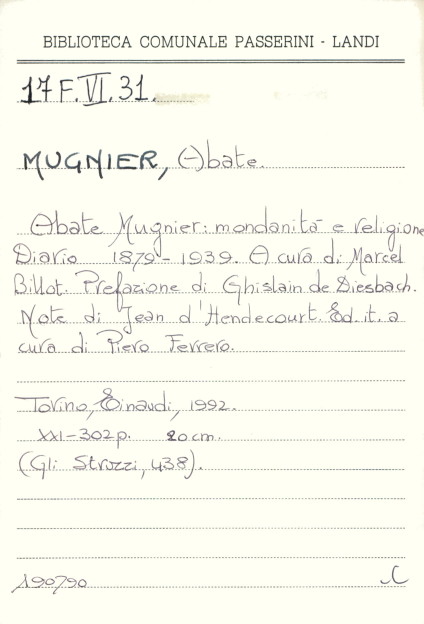 BIBLIOTECA COMUNALE PASSERINI - LANDI
17 F. VI. 31.
MUGNIER, Abate.
Abate Mugnier: mondanità e religione
Diario 1879 - 1939. A cura di Marcel
Billot. Prefazione di Ghislain de Diesbach.
Note di Jean d'Hendecourt. Ed. it. a
cura di Piero Ferrero.
Torino, Einaudi, 1992.
XXI-302 p. 20 cm.
(Gli Struzzi, 438).
190790